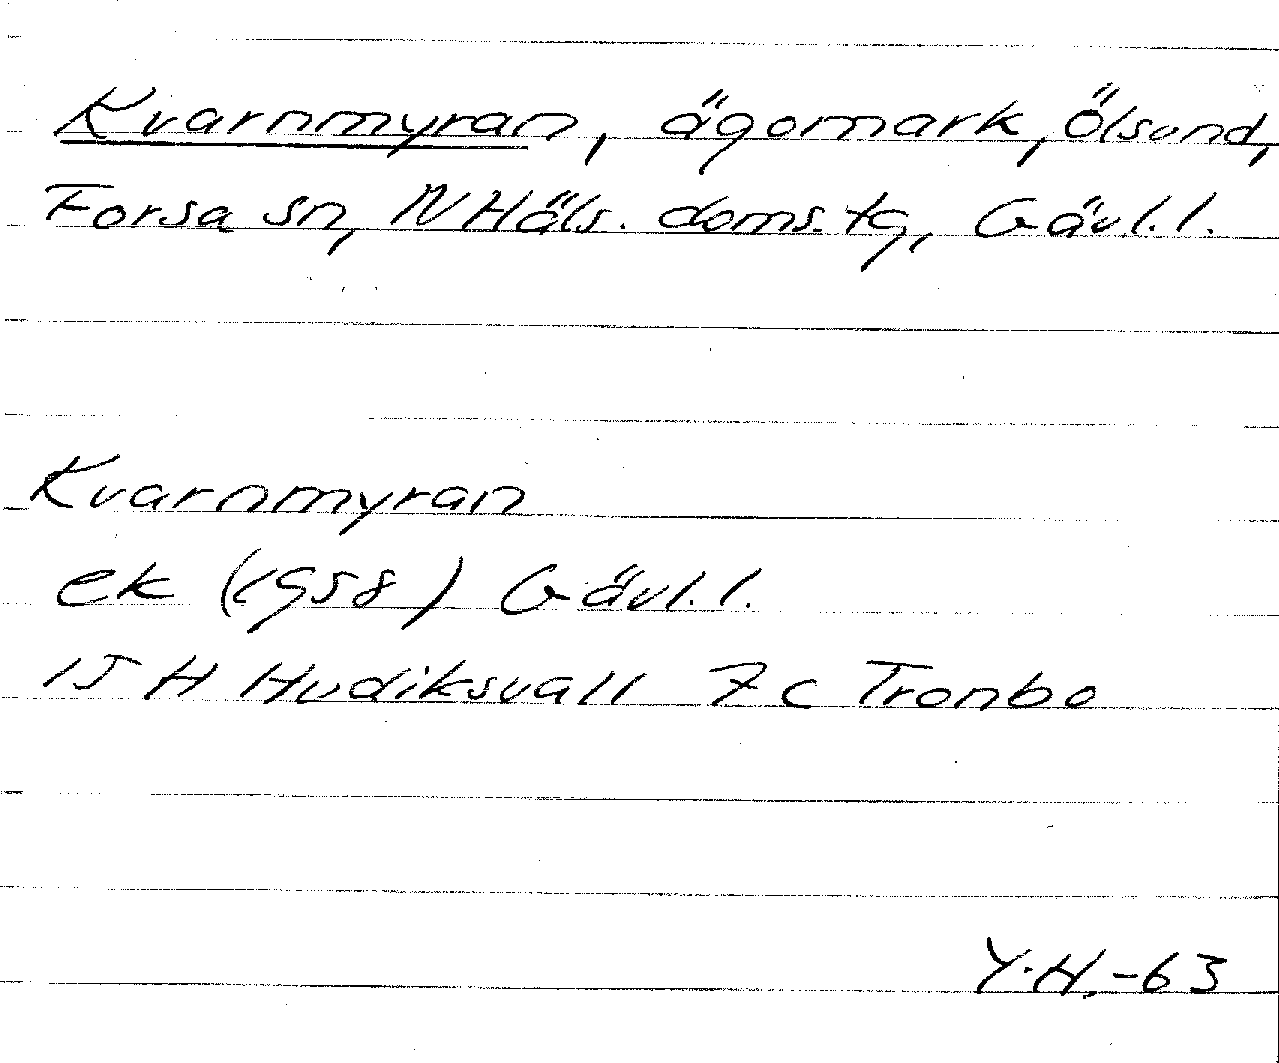 Kvarnmyran, ägomark, Ölsund,
Forsa sn, N Häls. doms. tg, Gävl. l.
Kvarnmyran
ek (1958) Gävl. l.
15 H Hudiksvall 7 c Tronbo
Y. H. -63